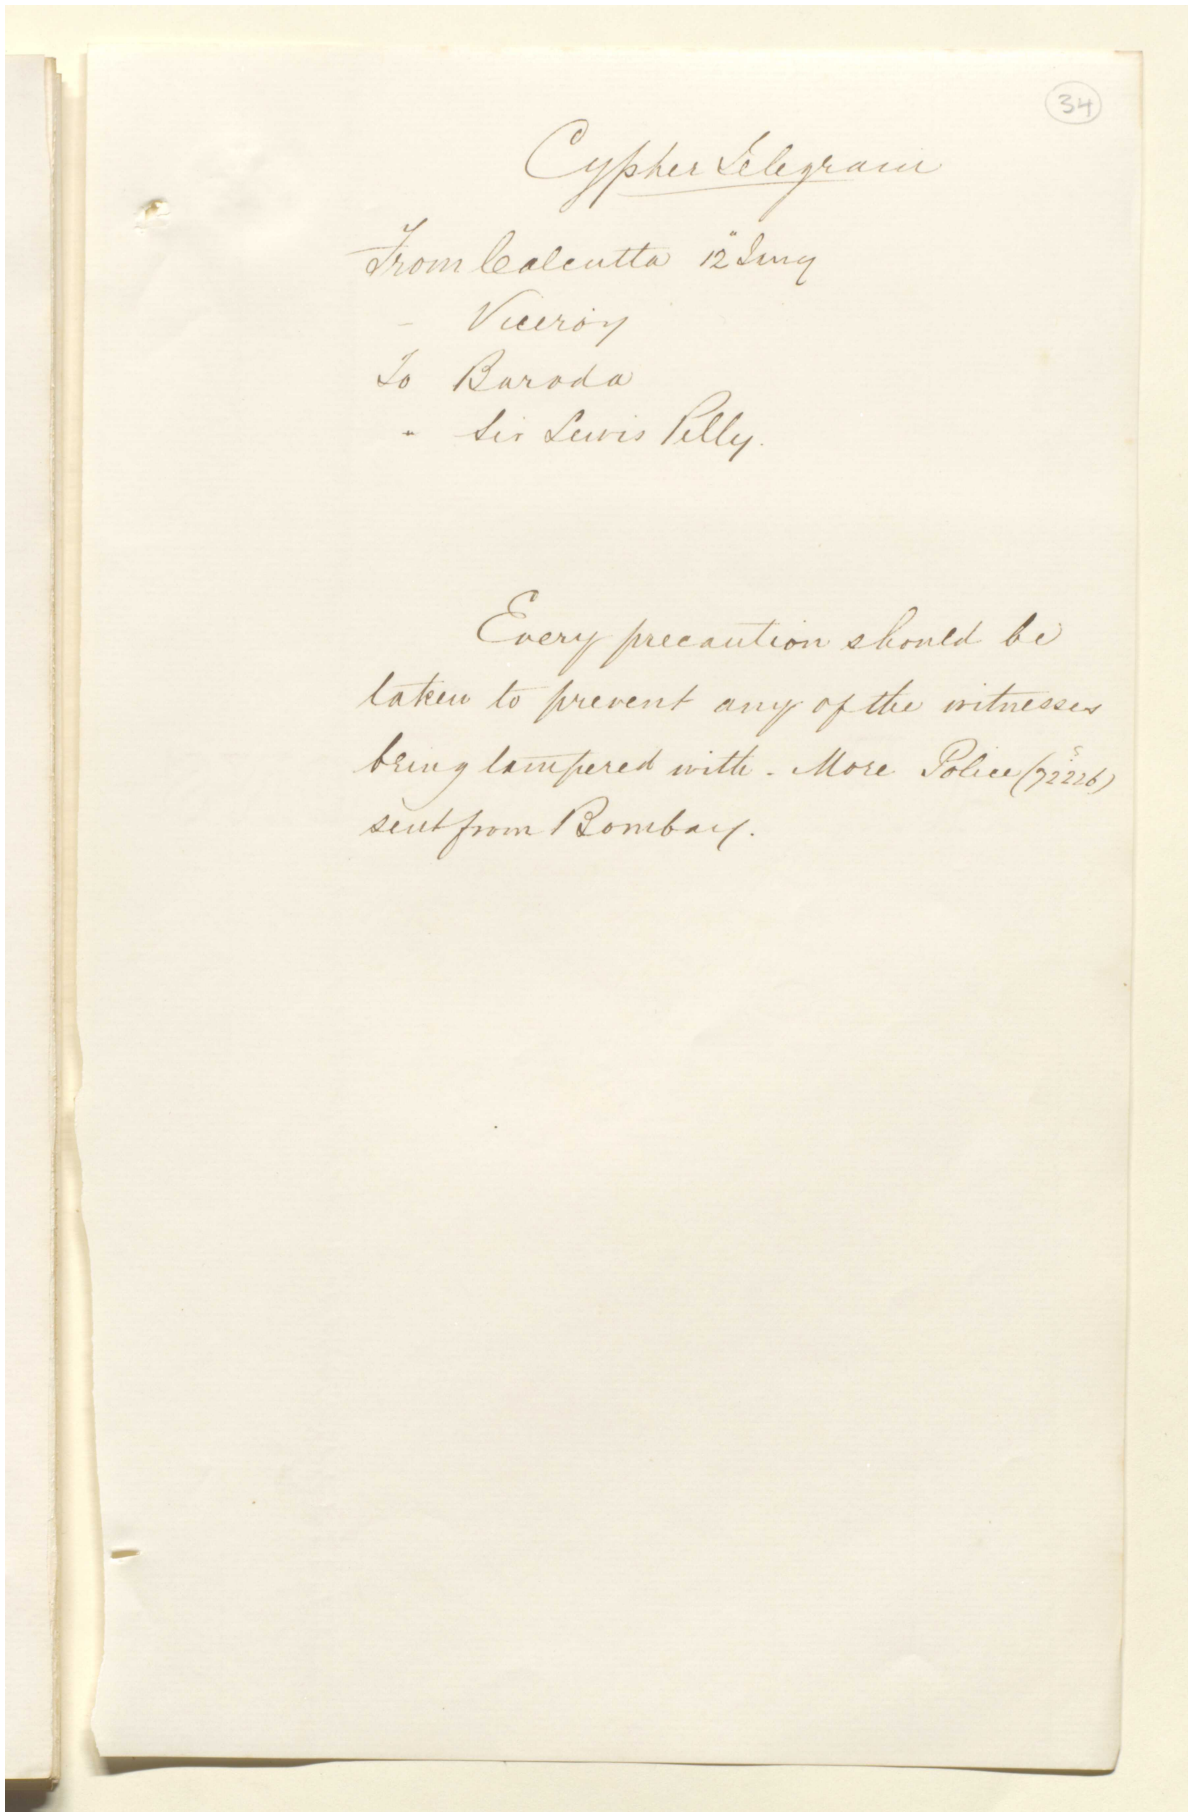 34
Cypher Telegram
From Calcutta 12" Jany
- Viceroy
To Baroda
" Sir Lewis Pelly.
Every precaution should be
taken to prevent any of the witnesses
being tampered with. More Police (72226)
sent from Bombay.